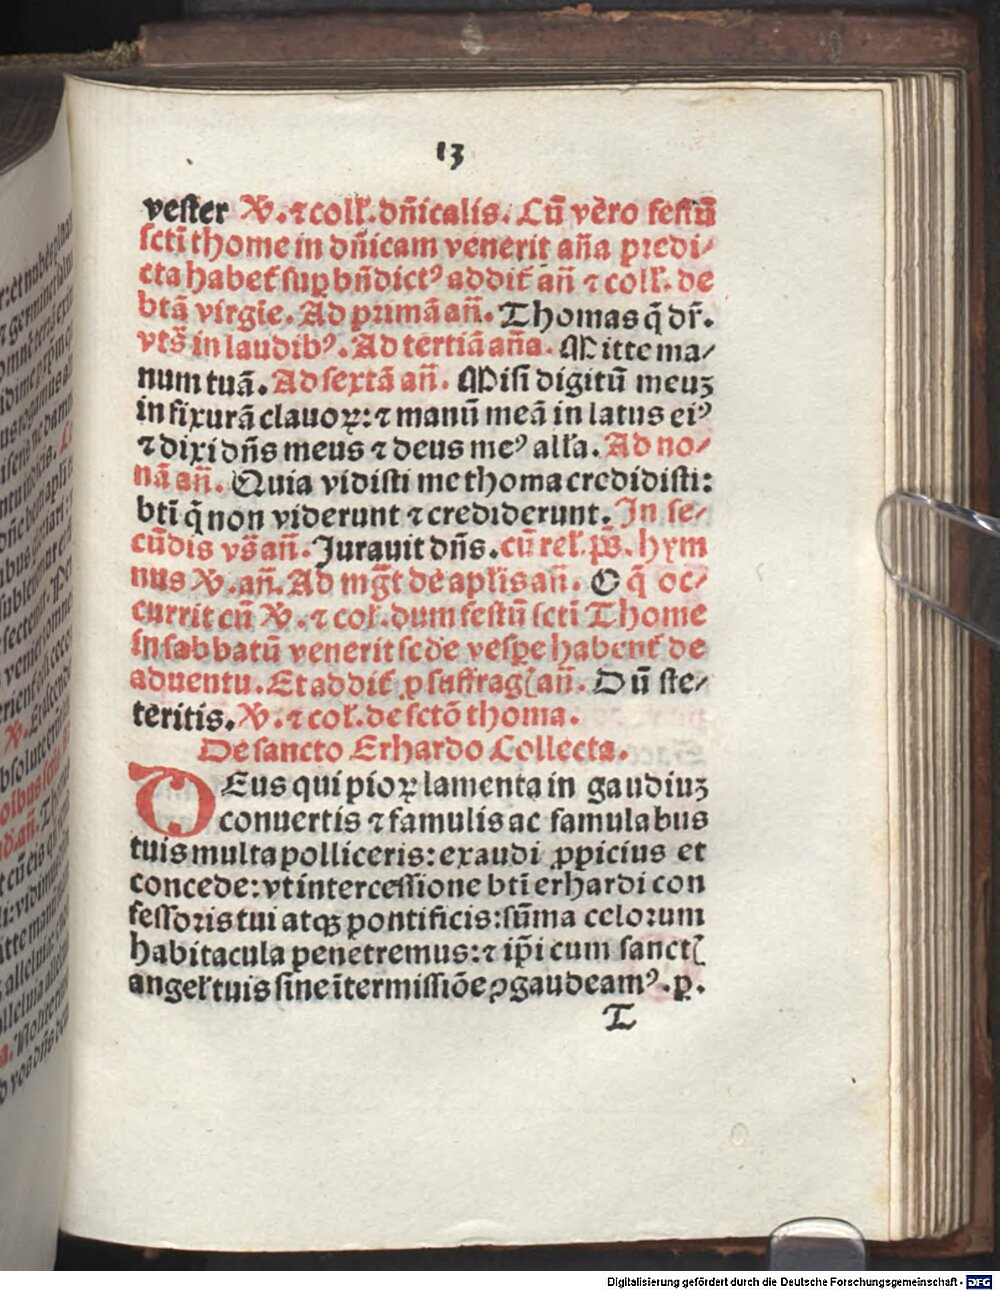 13
vester ꝟ. ⁊ coll̕. dñicalis. Cũ vero festũ
scti thome in dñicam venerit aña predi⸗
cta habet̕ sup bñdictꝰ addit̕ añ ⁊ coll̕. de
btã virgie. Ad primã añ. Thomas q̃ dr̃.
vts̃ in laudibꝰ. Ad tertiã aña. Mitte ma⸗
num tuã. Ad sextã añ. Misi digitũ meuʒ
in fixurã clauoꝝ: ⁊ manũ meã in latus eiꝰ
⁊ dixi dñs meus ⁊ deus meꝰ alla. Ad no⸗
nã añ. Quia vidisti me thoma credidisti:
bti q̃ non viderunt ⁊ crediderunt. In se⸗
cũdis vs̃ añ. Jurauit dñs. cũ rel̕. ps̃. hym
nus ꝟ. añ. Ad mg̃t de aplis añ. O q̃ oc⸗
currit cũ ꝟ. ⁊ col̕. dum festũ scti Thome
in sabbatũ venerit scde vespe habent̕ de
aduentu. Et addit̕ ꝓ suffrag̕ añ. Dũ ste⸗
teritis. ꝟ. ⁊ col̕. de sctõ thoma.
De sancto Erhardo Collecta.
DEus qui pioꝝ lamenta in gaudiuʒ
conuertis ⁊ famulis ac famulabus
tuis multa polliceris: exaudi ꝓpicius et
concede: vt intercessione bti erhardi con
fessoris tui atqʒ pontificis: sũma celorum
habitacula penetremus: ⁊ ip̃i cum sanct̕
angel̕ tuis sine ĩtermissiõe ꝯgaudeamꝰ. ꝑ.
T
Digitalisierung gefördert durch die Deutsche Forschungsgemeinschaft - DFG